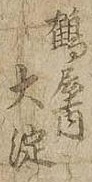 鶴屋内
大淀